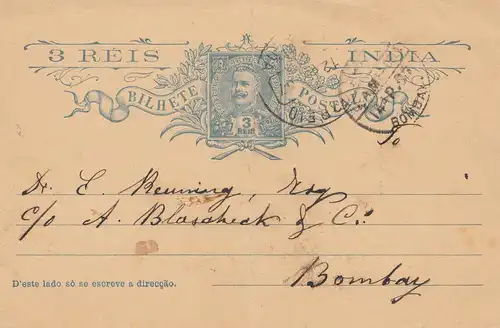 3 RÉIS INDIA
BILHETE POSTAL
3
REIS
BOMBAY
To
Dr. E. Reuning, Esq
c/o A. Blascheck & Co.
Bombay
D'este lado só se escreve a direcção.